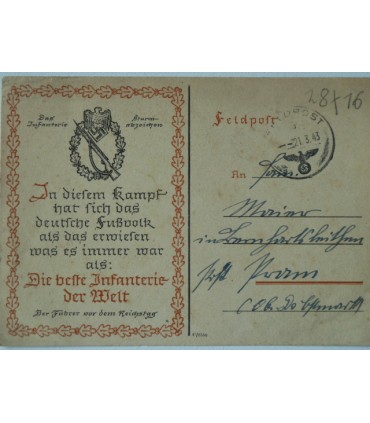 Das
Infanterie
Sturm-
abzeichen
In diesem Kampf
hat sich das
deutsche Fußvolk
als das erwiesen
was es immer war
als:
Die beste Infanterie
der Welt
Der Führer vor dem Reichstag
28/16
Feldpost
FELDPOST
21.3.43
An Fam.
Maier
in Leonhartsleithen
Post Pram
(Ob. Do.